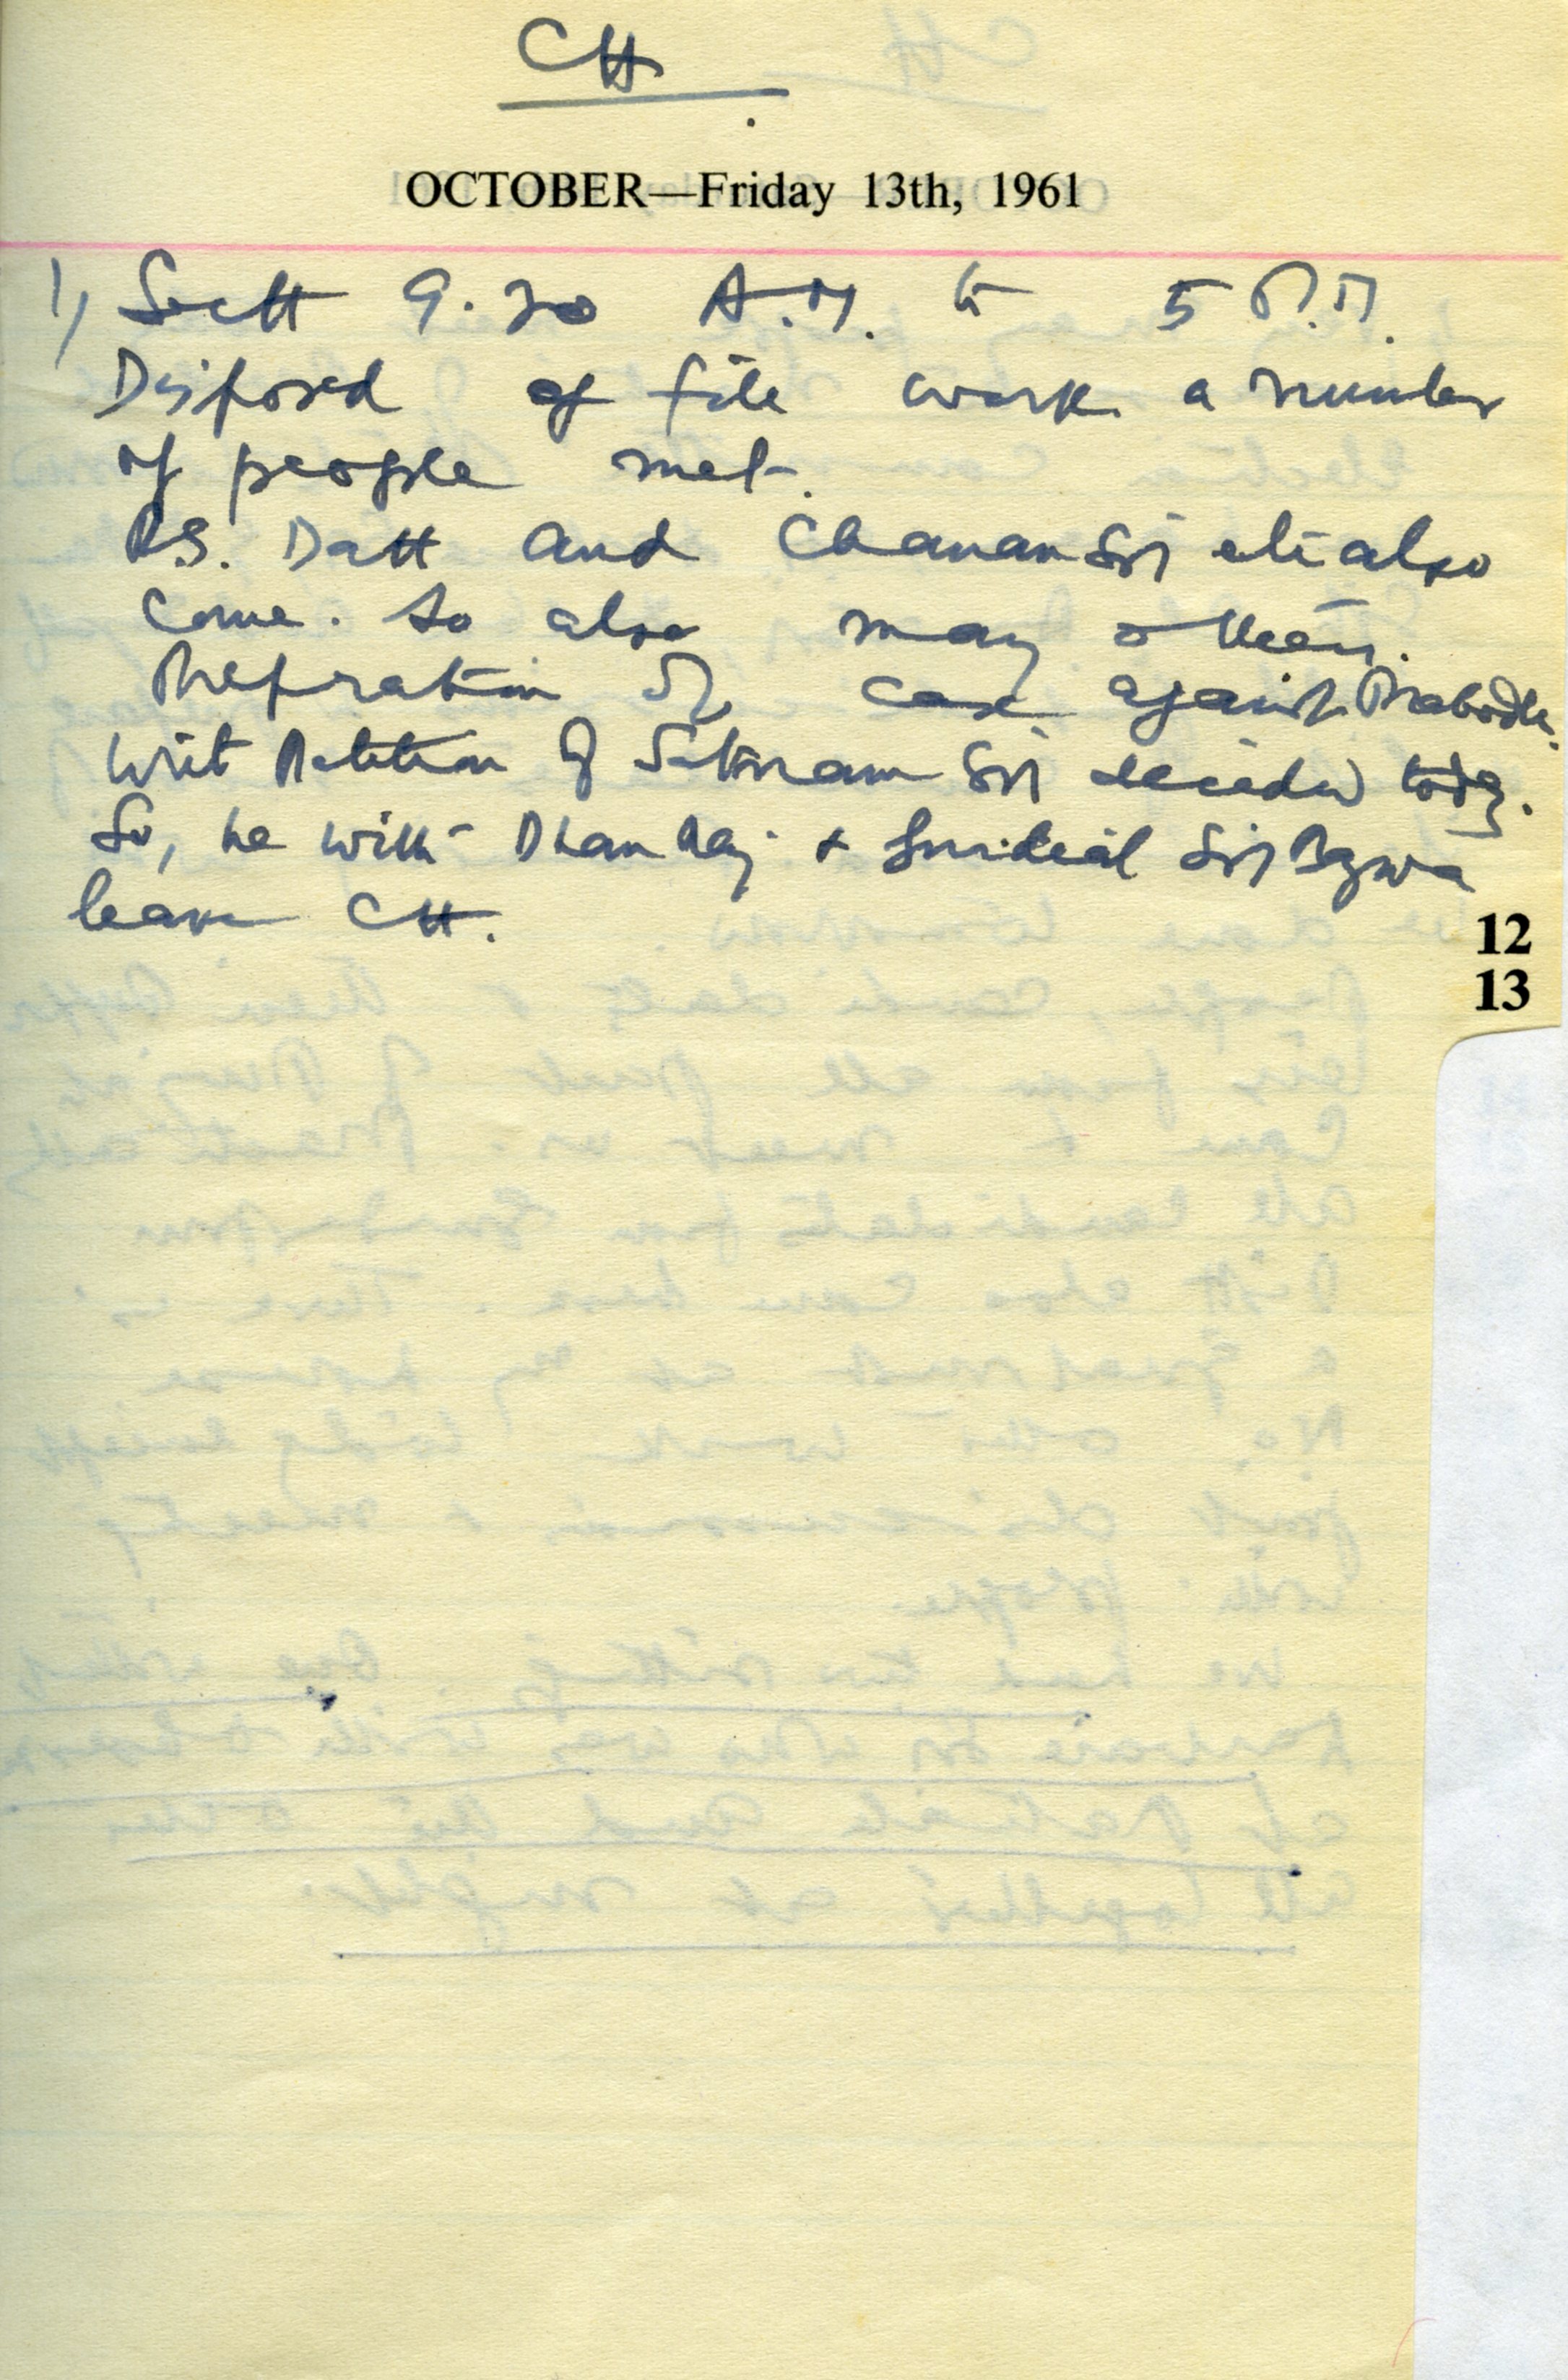 CH.
OCTOBER—Friday 13th, 1961
1) Sectt 9.30 A.M. to 5 P.M.
Disposed of file work a number
of people met.
R.S. Datt and Chanan Singh etc also
come. So also many others.
Prepration of case against Prabodh.
Writ Petition of Satnam Singh decided today.
So, he with Dhan Raj + Gurdial Singh Bajwa
leave CH.
12
13